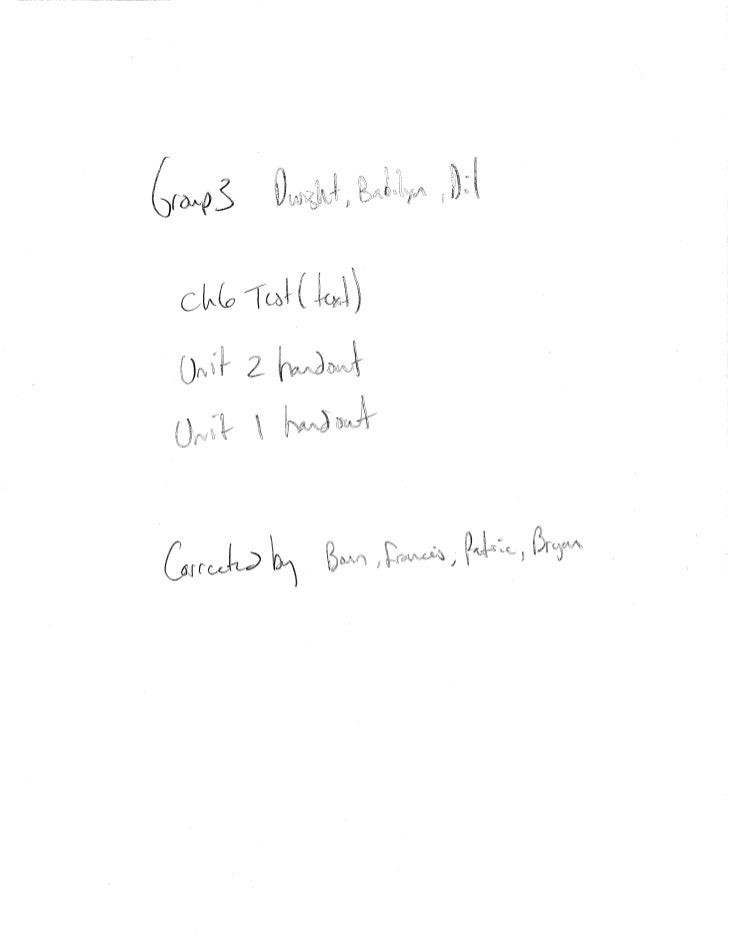 Group 3 Dwight, , Dil
Ch6 Test (text)
Unit 2 handout
Unit 1 handout
Corrected by , Francis, Patric, Bryan